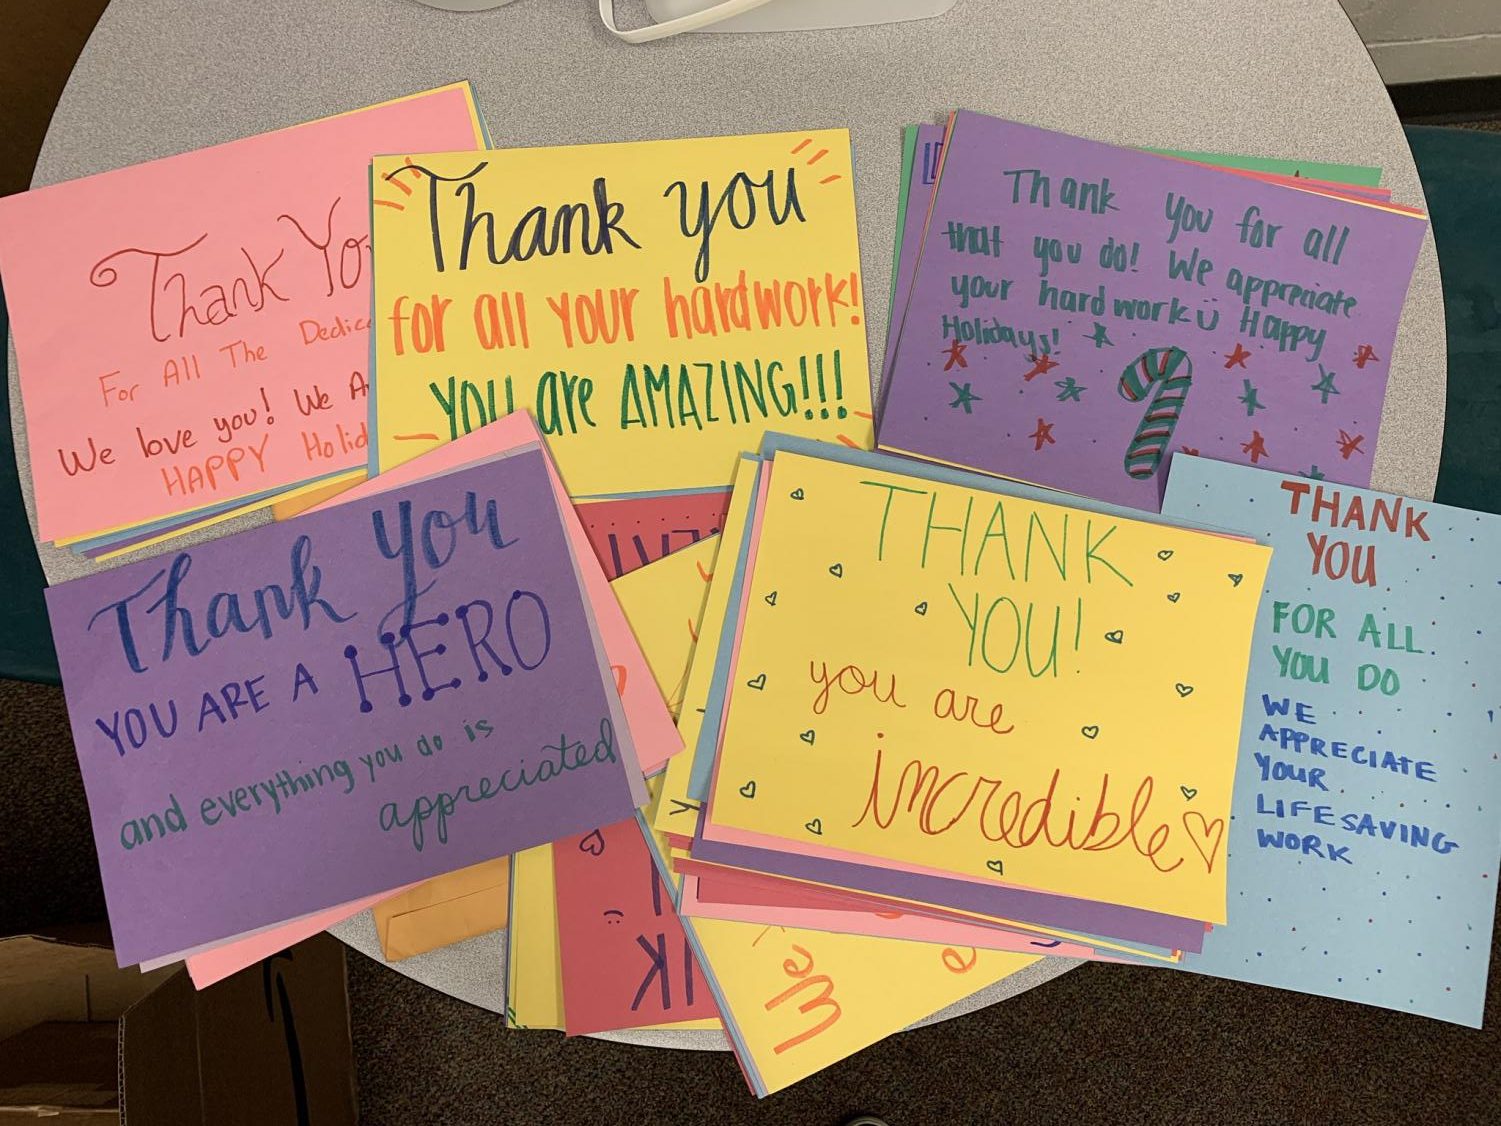 Thank
For All The
We love you! We
HAPPY
Thank you
for all your hardwork!
you are AMAZING!!!
Thank you for all
that you do! We appreciate
your hardwork Ü Happy
Holidays!
Thank you
YOU ARE A HERO
and everything you do is
appreciated
THANK
YOU!
you are
incredible
THANK
YOU
FOR ALL
YOU DO
WE
APPRECIATE
YOUR
LIFESAVING
WORK
We